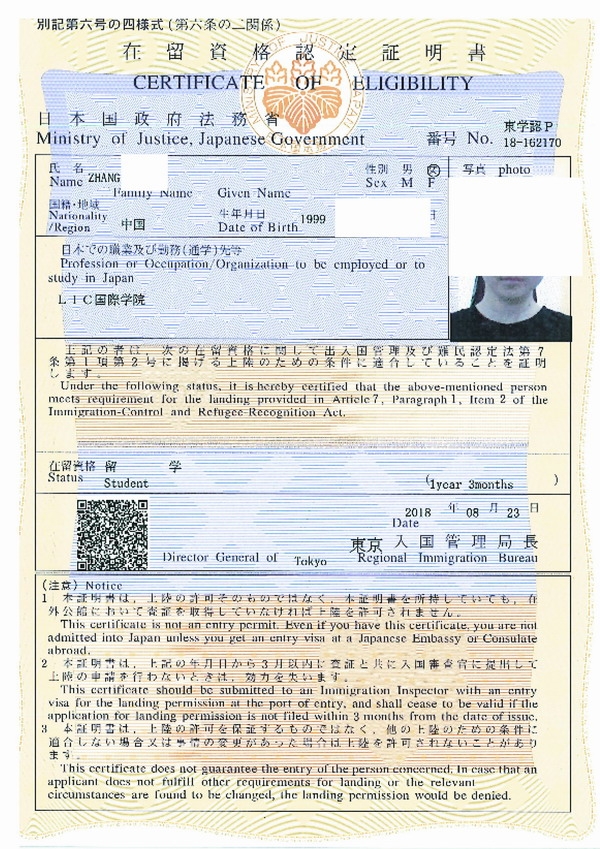 別記第六号の四様式(第六条の二関係)
在留資格認定証明書
CERTIFICATE OF ELIGIBILITY
日本国政府法務省
Ministry of Justice, Japanese Government
番号 No. 東学認P
18-162170
氏 名
Name ZHANG
Family Name Given Name
性別 男 女
Sex M F
写真 photo
国籍・地域
Nationality
/Region 中国
生年月日
Date of Birth 1999
日
日本での職業及び勤務(通学)先等
Profession or Occupation/Organization to be employed or to
study in Japan
LIC国際学院
上記の者は、次の在留資格に関して出入国管理及び難民認定法第7
条第1項第2号に掲げる上陸のための条件に適合していることを証明
します。
Under the following status, it is hereby certified that the above-mentioned person
meets requirement for the landing provided in Article 7, Paragraph 1, Item 2 of the
Immigration-Control and Refugee-Recognition Act.
在留資格 留 学
Status Student
(1year 3months )
2018 年 08 月 23 日
Date
東京 入国管理局長
Director General of Tokyo Regional Immigration Bureau
(注意) Notice
1 本証明書は、上陸の許可そのものではなく、本証明書を所持していても、在
外公館において査証を取得していなければ上陸を許可されません。
This certificate is not an entry permit. Even if you have this certificate, you are not
admitted into Japan unless you get an entry visa at a Japanese Embassy or Consulate
abroad.
2 本証明書は、上記の年月日から3月以内に査証と共に入国審査官に提出して
上陸の申請を行わないときは、効力を失います。
This certificate should be submitted to an Immigration Inspector with an entry
visa for the landing permission at the port of entry, and shall cease to be valid if the
application for landing permission is not filed within 3 months from the date of issue.
3 本証明書は、上陸の許可を保証するものではなく、他の上陸のための条件に
適合しない場合又は事情の変更があった場合は上陸を許可されないことがあり
ます。
This certificate does not guarantee the entry of the person concerned. In case that an
applicant does not fulfill other requirements for landing or the relevant
circumstances are found to be changed, the landing permission would be denied.